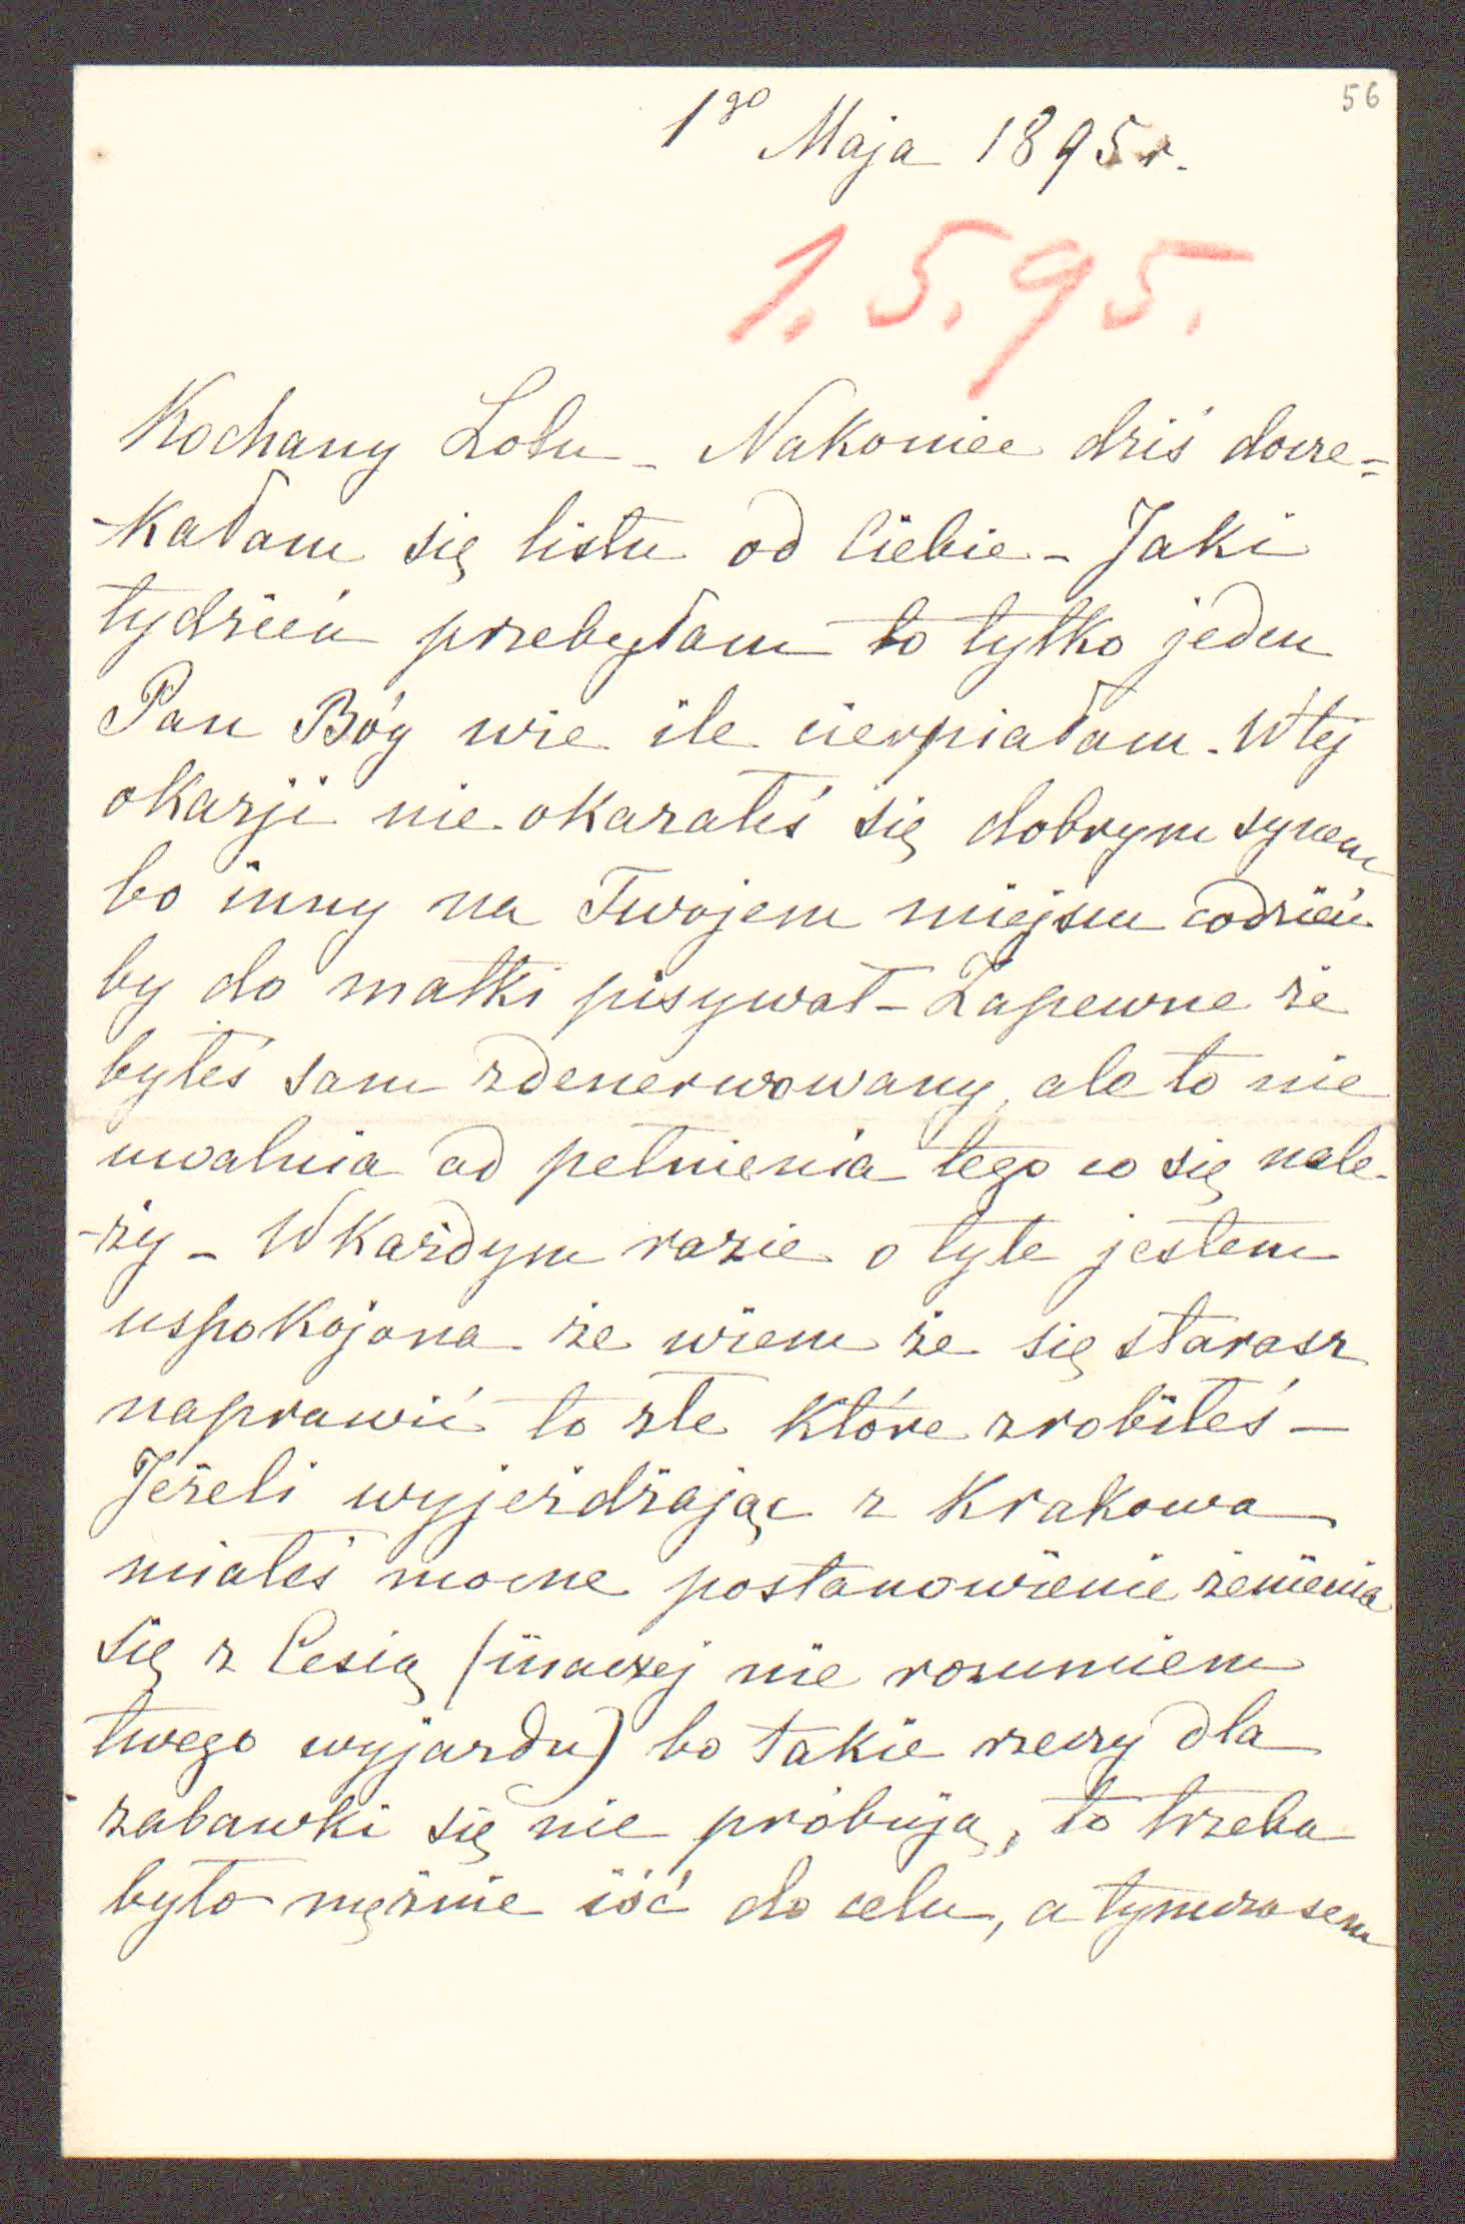 56
1go Maja 1895 r.
1.5.95.
Kochany Lolu - Nakoniec dziś docze=
-kałam się listu od Ciebie - Jaki
tydzień przebyłam to tylko jeden
Pan Bóg wie ile cierpiałam. W tej
okazji nie okazałeś się dobrym synem
bo inny na Twojem miejscu codzień
by do matki pisywał - Zapewne że
byłeś sam zdenerwowany, ale to nie
uwalnia od pełnienia tego co się nale-
-ży - W każdym razie o tyle jestem
uspokojona że wiem że się starasz
naprawić to złe które zrobiłeś -
Jeżeli wyjeżdżając z Krakowa
miałeś mocne postanowienie żenienia
się z Cesią (inaczej nie rozumiem
twego wyjazdu) bo takie rzeczy dla
zabawki się nie próbują, to trzeba
było mężnie iść do celu, a tymczasem